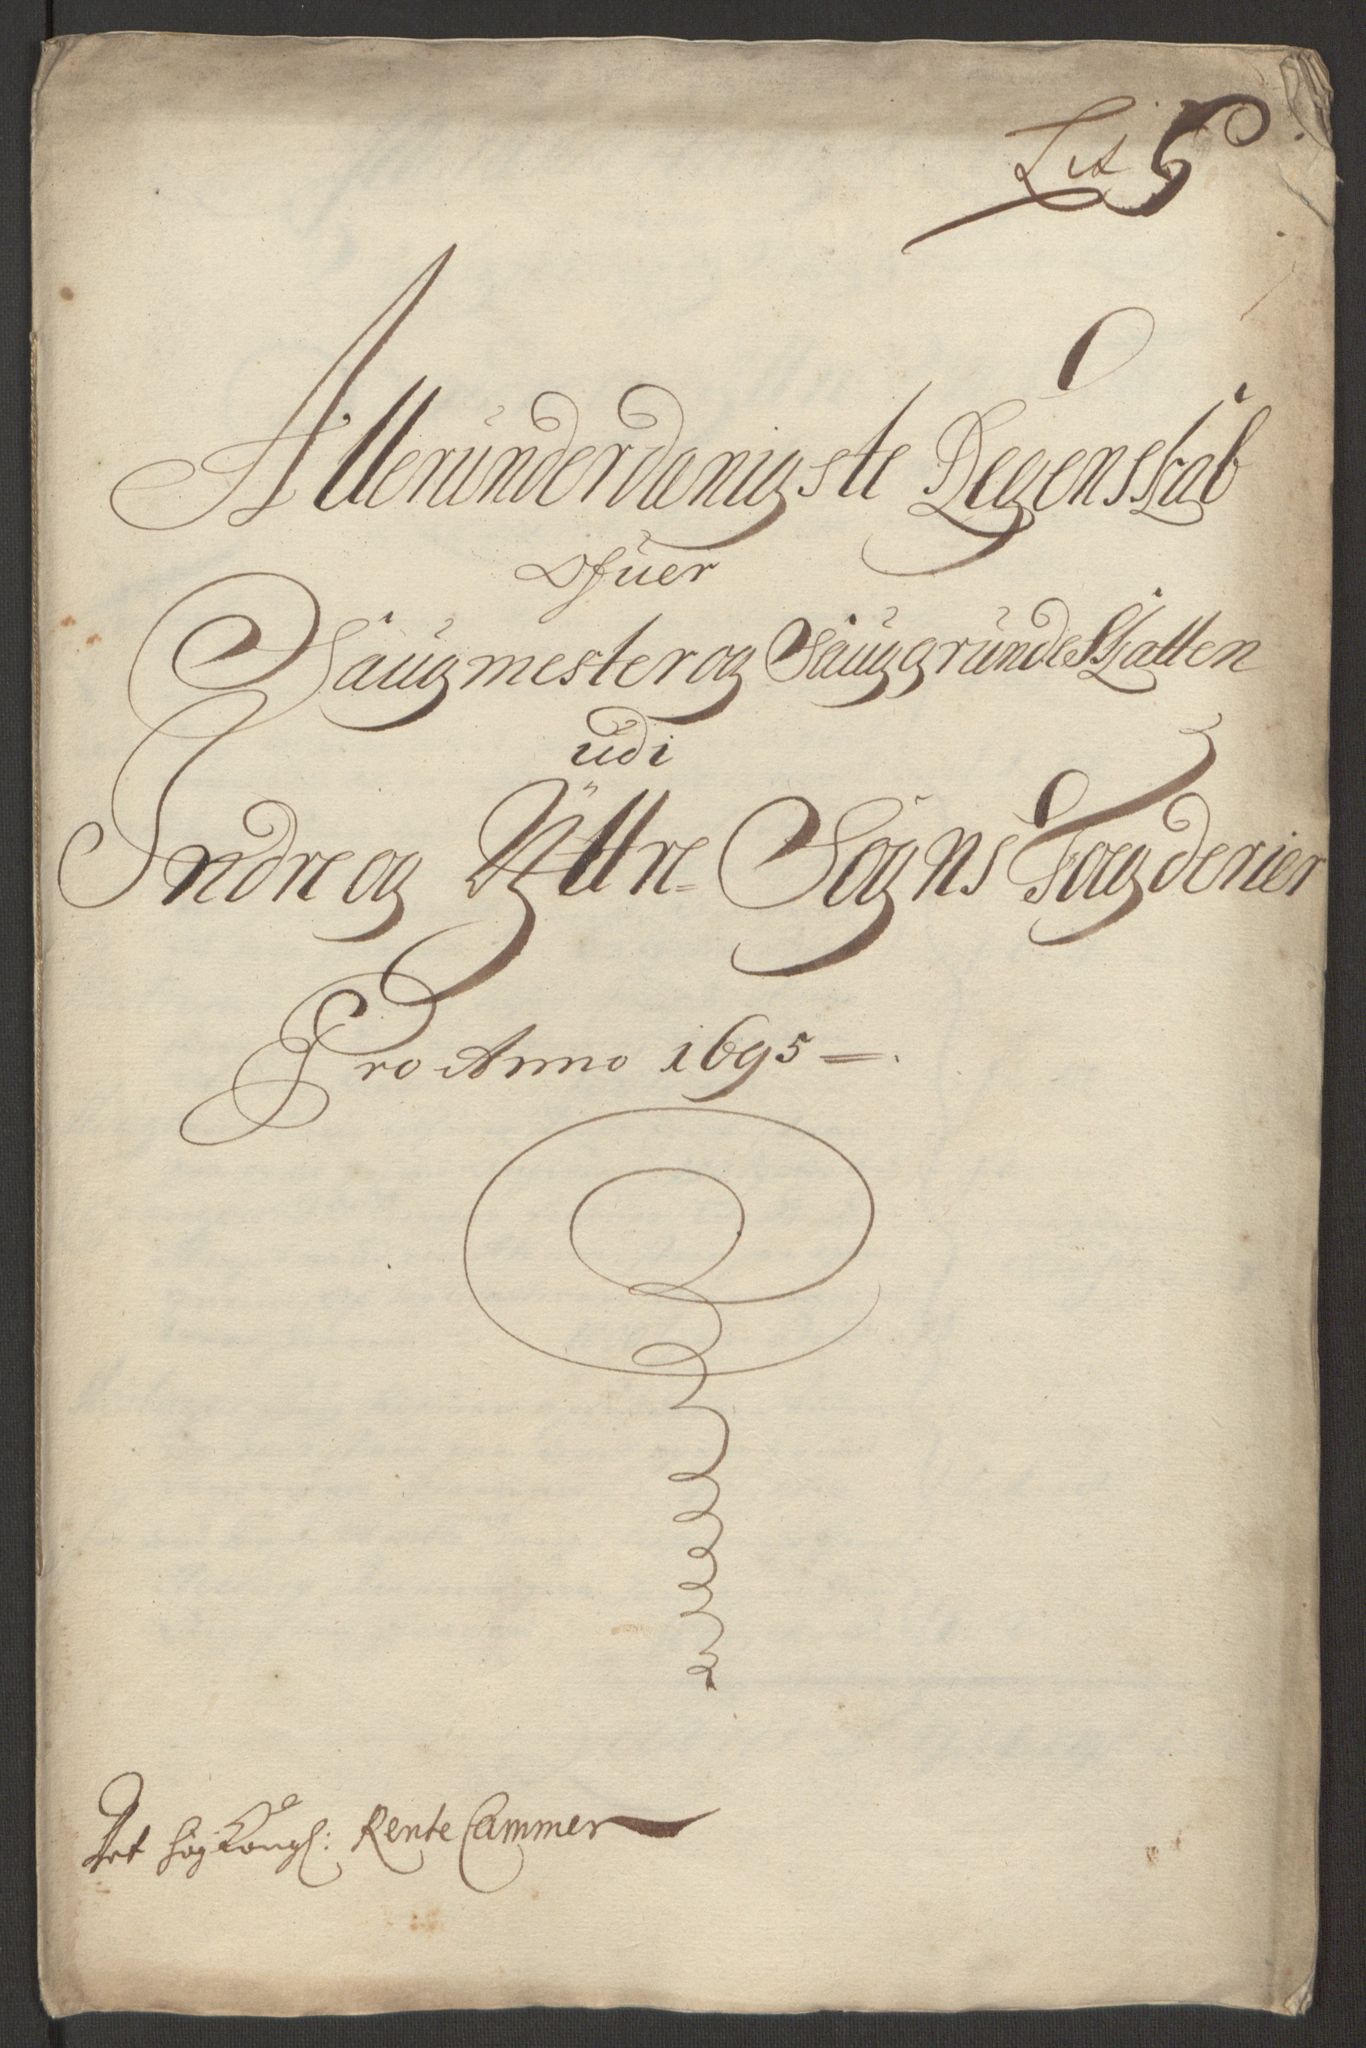 Lit G
Allerunderdanigste Regenskab
Ofuer
Saugmester og Sauggrunde Skatten
udi
Indre og Yttre Sogns Fogderier
Pro Anno 1695
Det høy Kongl: Rente Cammer